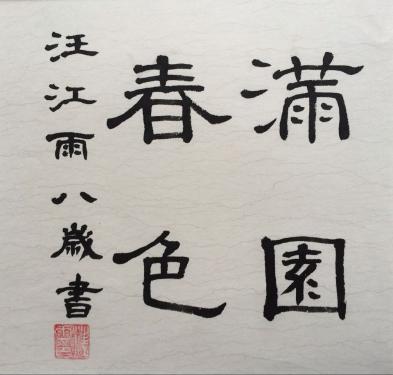 滿園
春色
汪江雨八歲書